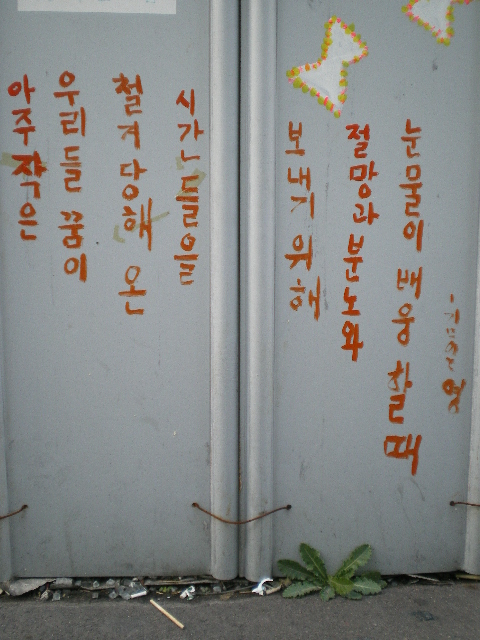 눈물이 배웅 할 때
절망과 분노와
보내기 위해
시간들을
철거당해 온
우리들 꿈이
아주 작은